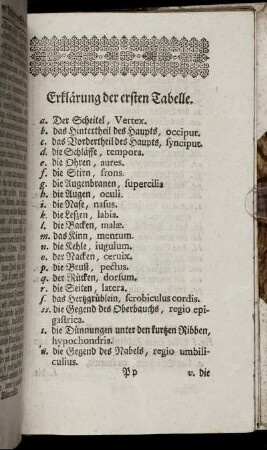 Erklärung der ersten Tabelle.
a. Der Scheitel, Vertex.
b. das Hintertheil des Haupts, occiput.
c. das Vordertheil des Haupts, synciput.
d. die Schläffe, tempora.
e. die Ohren, aures.
f. die Stirn, frons.
g. die Augenbranen, supercilia
h. die Augen, oculi.
i. die Nase, nasus.
k. die Lefzen, labia.
l. die Backen, malæ.
m. das Kinn, mentum.
n. die Kehle, iugulum.
o. der Nacken, ceruix.
p. die Brust, pectus.
q. der Rücken, dorsum.
r. die Seiten, latera.
s. das Hertzgrüblein, scrobiculus cordis.
ss. die Gegend des Oberbauchs, regio epi-
gastrica.
t. die Dünnungen unter den kurtzen Ribben,
hypochondria.
u. die Gegend des Nabels, regio umbili-
culius.
Pp v. die